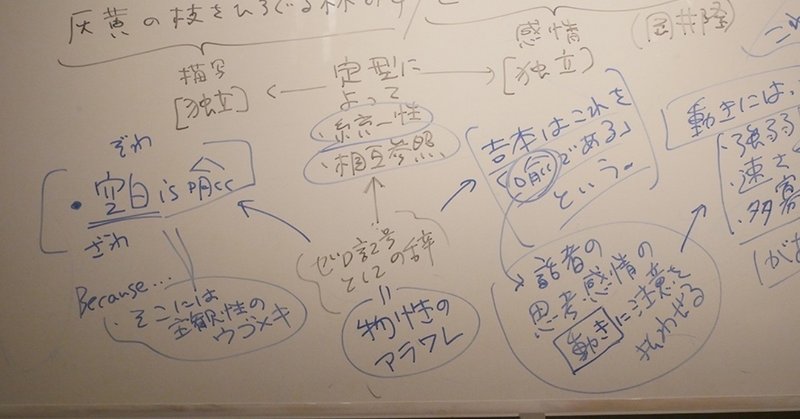 灰黄の枝をひろぐる林のす
(岡井隆)
描写
[独立]
定型に
よって
感情
[独立]
・統一性
・相互参照
ぞれ
・空白 is 喩
ざれ
Because...
・そこには
主観性の
ウゴメキ
ゼロ記号
としての辞
物性の
アラワレ
吉本はこれを
「喩である」
という。
話者の
思考感情の
動きに注意を
払わせる
動きには、
・強弱
・速さ
・多寡
があ
これ